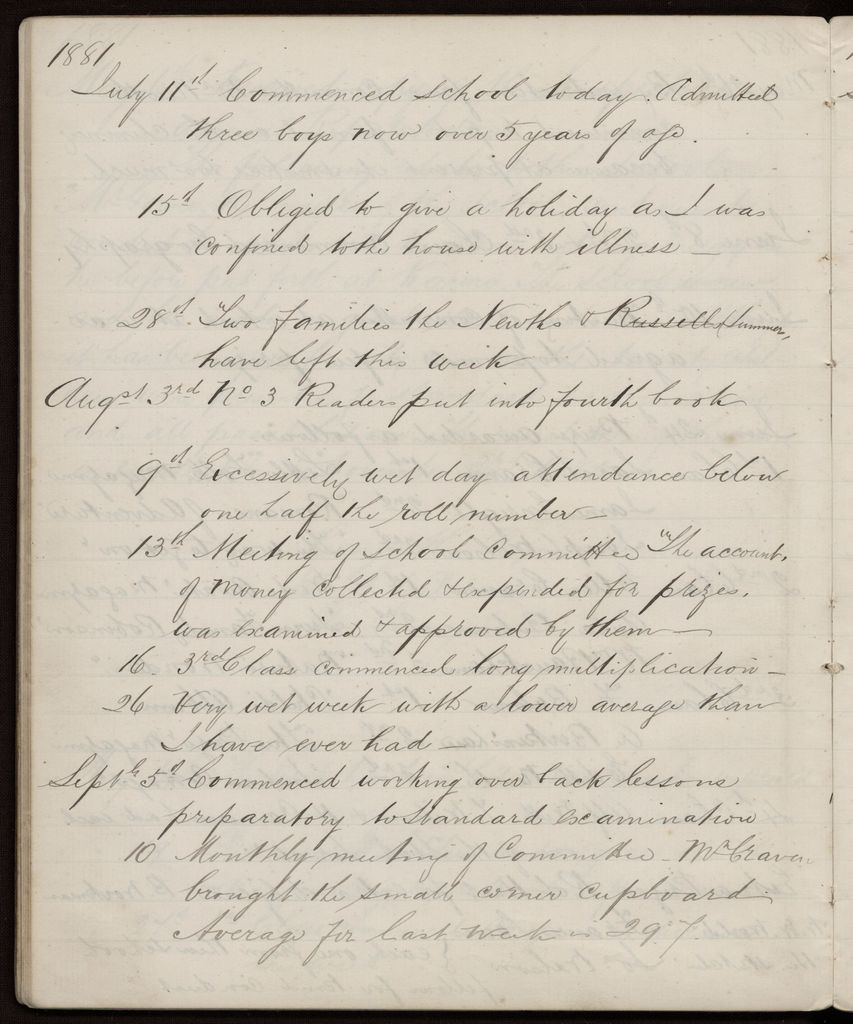 1881
July 11th Commenced school today. Admitted
three boys now over 5 years of age.
15th Obliged to give a holiday as I was
confined to the house with illness —
28th Two families the Newths & Russells (Sumner,
have left this week
Augst 3rd No 3 Readers put into fourth book
9th Excessively wet day attendance below
one half the roll number —
13th Meeting of School Committee "The account,
of money collected & expended for prizes.
was examined & approved by them —
16. 3rd Class commenced long multiplication —
26 Very wet week with a lower average than
I have ever had —
Septbr 5th Commenced working over back lessons
preparatory to Standard examination
10 Monthly meeting of Committee — Mr Craven
brought the small corner cupboard.
Average for last week is 29.7.